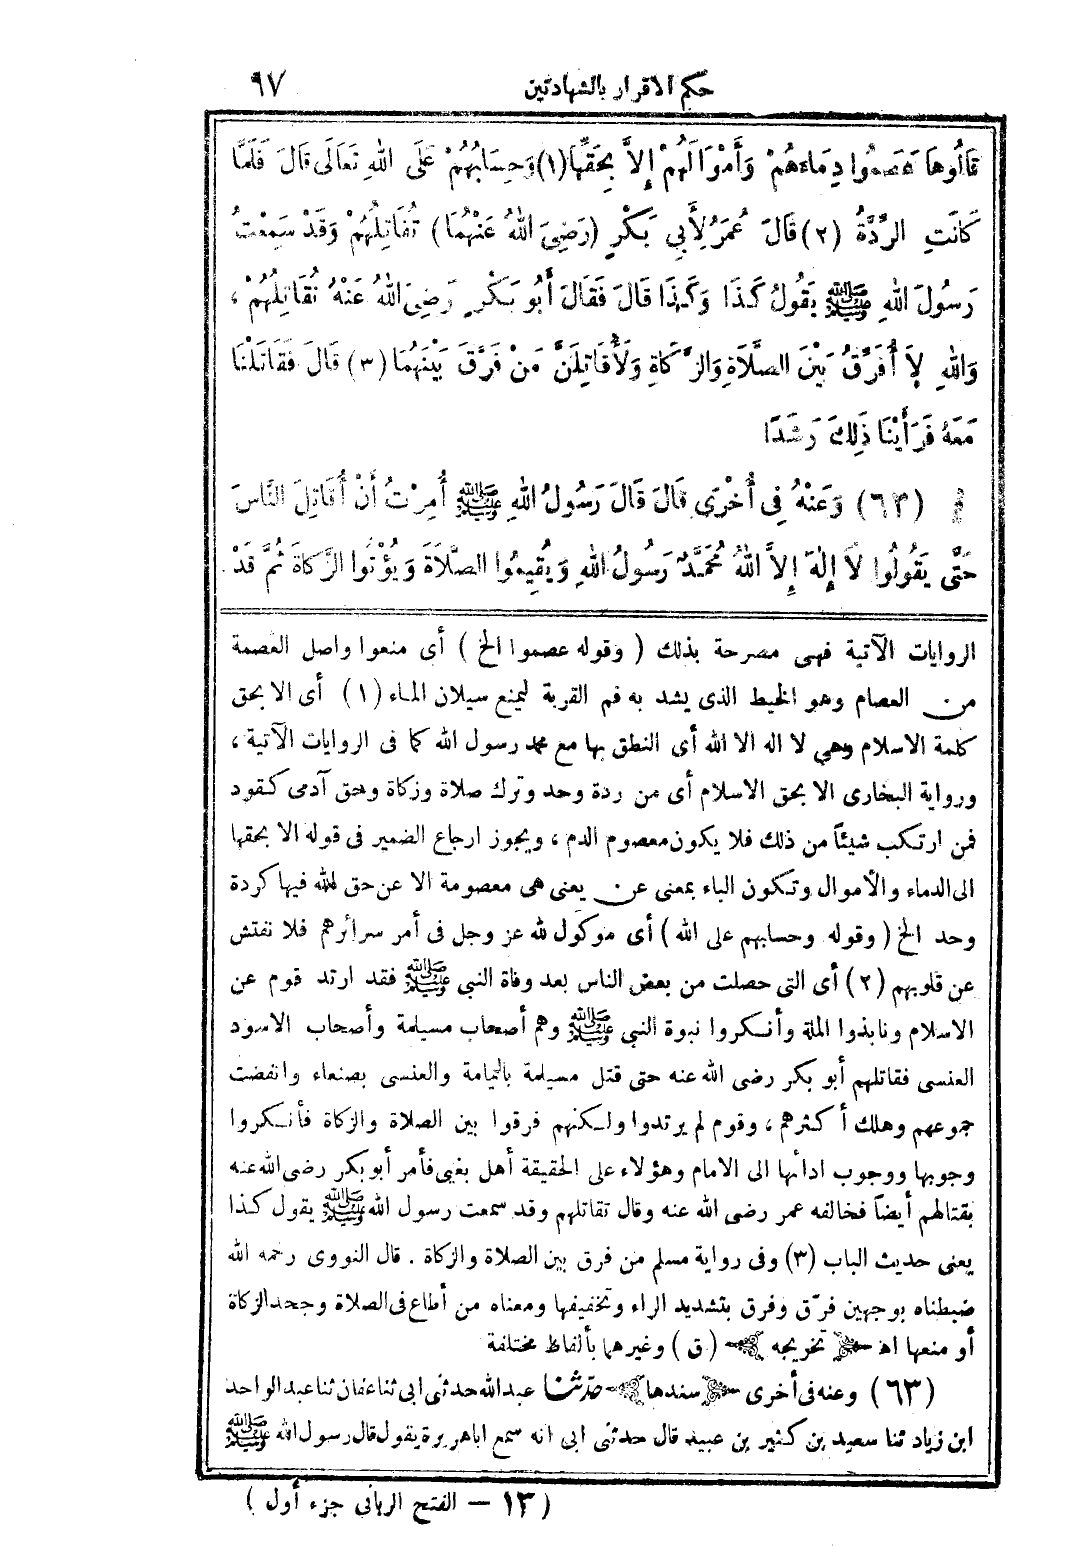 حكم الاقرار بالشهادتين ٩٧
قَالُوهَا عَصَمُوا دِمَاءَهُمْ وَأَمْوَالَهُمْ إِلاَّ بِحَقِّهَا (١) وَحِسَابُهُمْ عَلَى اللهِ تَعَالَى قَالَ فَلَمَّا
كَانَتِ الرِّدَّةُ (٢) قَالَ عُمَرُ لِأَبِي بَكْرٍ (رَضِىَ اللهُ عَنْهُمَا) تُقَاتِلُهُمْ وَقَدْ سَمِعْتُ
رَسُولَ اللهِ ﷺ يَقُولُ كَذَا وَكَذَا قَالَ فَقَالَ أَبُو بَكْرٍ رَضِىَ اللهُ عَنْهُ نُقَاتِلُهُمْ ،
وَاللهِ لاَ أُفَرِّقُ بَيْنَ الصَّلاَةِ وَالزَّكَاةِ وَلَأُقَاتِلَنَّ مَنْ فَرَّقَ بَيْنَهُمَا (٣) قَالَ فَقَاتَلْنَا
مَعَهُ فَرَأَيْنَا ذَلِكَ رَشَدًا
(٦٣) وَعَنْهُ فِى أُخْرَى قَالَ قَالَ رَسُولُ اللهِ ﷺ أُمِرْتُ أَنْ أُقَاتِلَ النَّاسَ
حَتَّى يَقُولُوا لاَ إِلٰهَ إِلاَّ اللهُ مُحَمَّدٌ رَسُولُ اللهِ وَيُقِيمُوا الصَّلاَةَ وَيُؤْتُوا الزَّكَاةَ ثُمَّ قَدْ
الروايات الآتية فهى مصرحة بذلك ( وقوله عصموا الخ ) أى منعوا واصل العصمة
من العصام وهو الخيط الذى يشد به فم القربة ليمنع سيلان الماء (١) أى الا بحق
كلمة الاسلام وهي لا اله الا الله أى النطق بها مع محمد رسول الله كما فى الروايات الآتية ،
ورواية البخارى الا بحق الاسلام أى من ردة وحد وترك صلاة وزكاة وحق آدمى كقود
فمن ارتكب شيئاً من ذلك فلا يكون معصوم الدم ، ويجوز ارجاع الضمير فى قوله الا بحقها
الى الدماء والأموال وتكون الباء بمعنى عن يعنى هى معصومة الا عن حق لله فيها كردة
وحد الخ ( وقوله وحسابهم على الله ) أى موكول لله عز وجل فى أمر سرائرهم فلا نفتش
عن قلوبهم (٢) أى التى حصلت من بعض الناس بعد وفاة النبي ﷺ فقد ارتد قوم عن
الاسلام ونابذوا الملة وأنكروا نبوة النبى ﷺ وهم أصحاب مسيلمة وأصحاب الاسود
العنسى فقاتلهم أبو بكر رضى الله عنه حتى قتل مسيلمة باليمامة والعنسى بصنعاء وانفضت
جموعهم وهلك أكثرهم ، وقوم لم يرتدوا ولكنهم فرقوا بين الصلاة والزكاة فأنكروا
وجوبها ووجوب ادائها الى الامام وهؤلاء على الحقيقة أهل بغى فأمر أبو بكر رضى الله عنه
بقتالهم أيضاً فخالفه عمر رضى الله عنه وقال تقاتلهم وقد سمعت رسول الله ﷺ يقول كذا
يعنى حديث الباب (٣) وفى رواية مسلم من فرق بين الصلاة والزكاة . قال النووى رحمه الله
ضبطناه بوجهين فرّق وفرق بتشديد الراء وتخفيفها ومعناه من أطاع فى الصلاة وجحد الزكاة
أو منعها اهـ تخريجه (ق) وغيرهما بألفاظ مختلفة
(٦٣) وعنه فى أخرى سندها حدثنا عبد الله حدثنى ابى ثنا عفان ثنا عبد الواحد
ابن زياد ثنا سعيد بن كثير بن عبيد قال حدثنى ابى انه سمع اباهريرة يقول قال رسول الله ﷺ
( ١٣ — الفتح الربانى جزء أول )